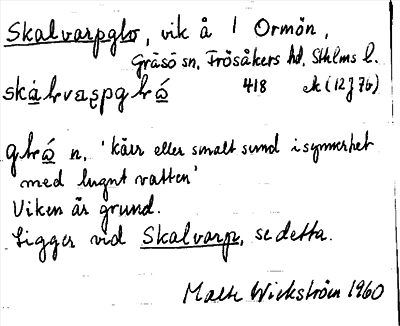 Skalvarpglo, vik å / Ormön,
Gräsö sn, Frösåkers hd, Sthlms l.
418 ek (12 J 7b)
glɷ́ n. 'kärr eller smalt sund i synnerhet
med lugnt vatten'
Viken är grund.
Ligger vid Skalvarp, se detta.
Malte Wickström 1960